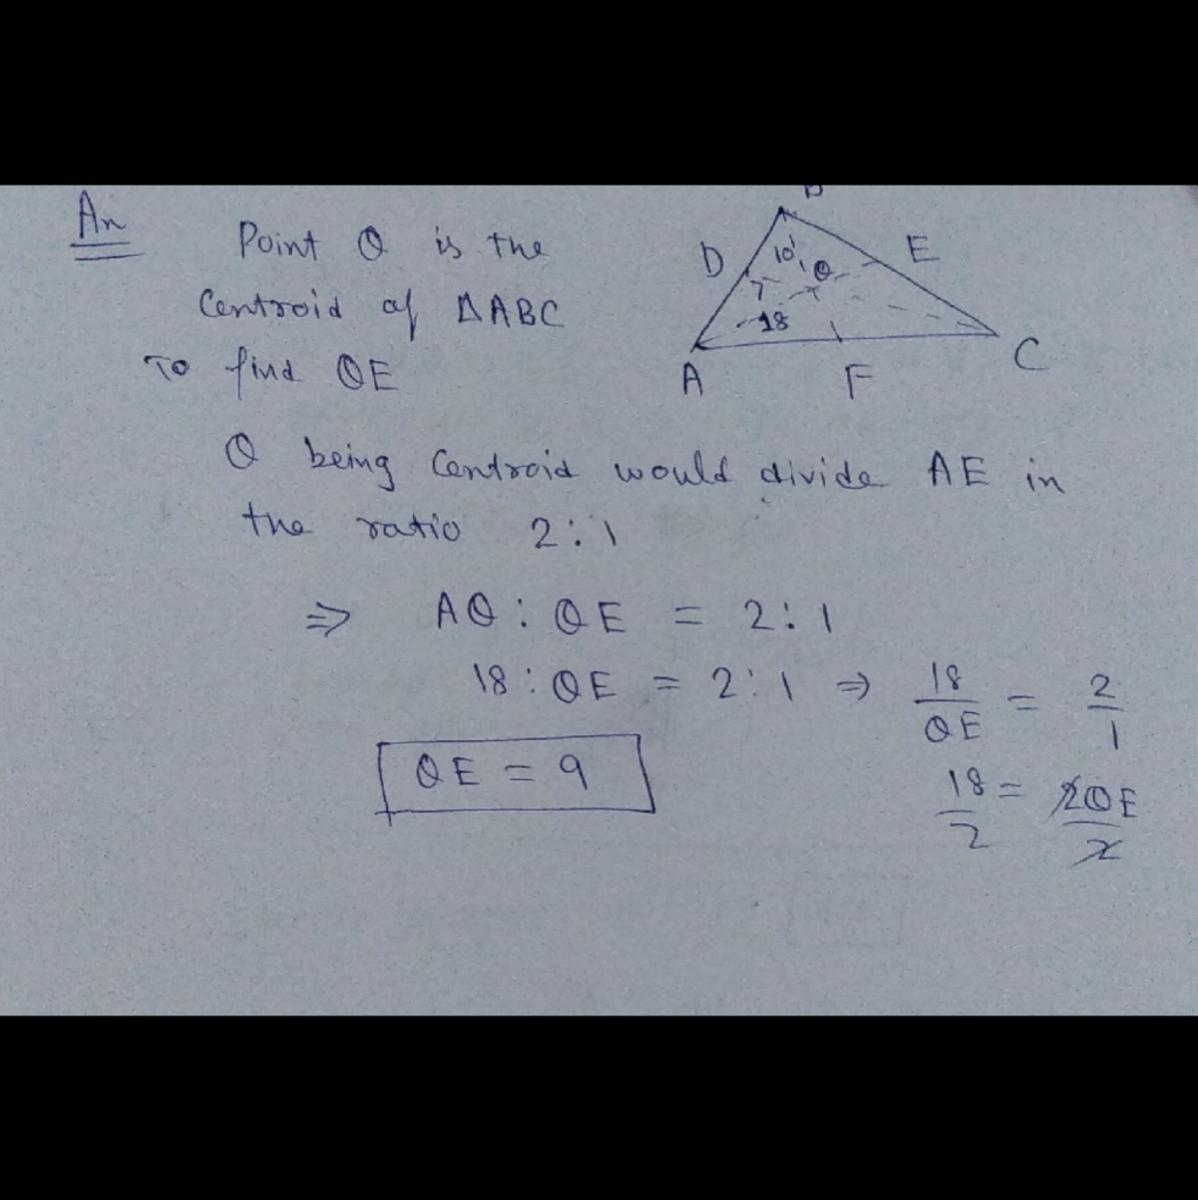 An
Point Q is the
Centroid of ΔABC
To find QE
D
10
Q
E
7
18
A
F
C
Q being Centroid would divide AE in
the ratio 2:1
⇒ AQ : QE = 2:1
18 : QE = 2:1 ⇒ 18/QE = 2/1
QE = 9
18/2 = 2QE/2